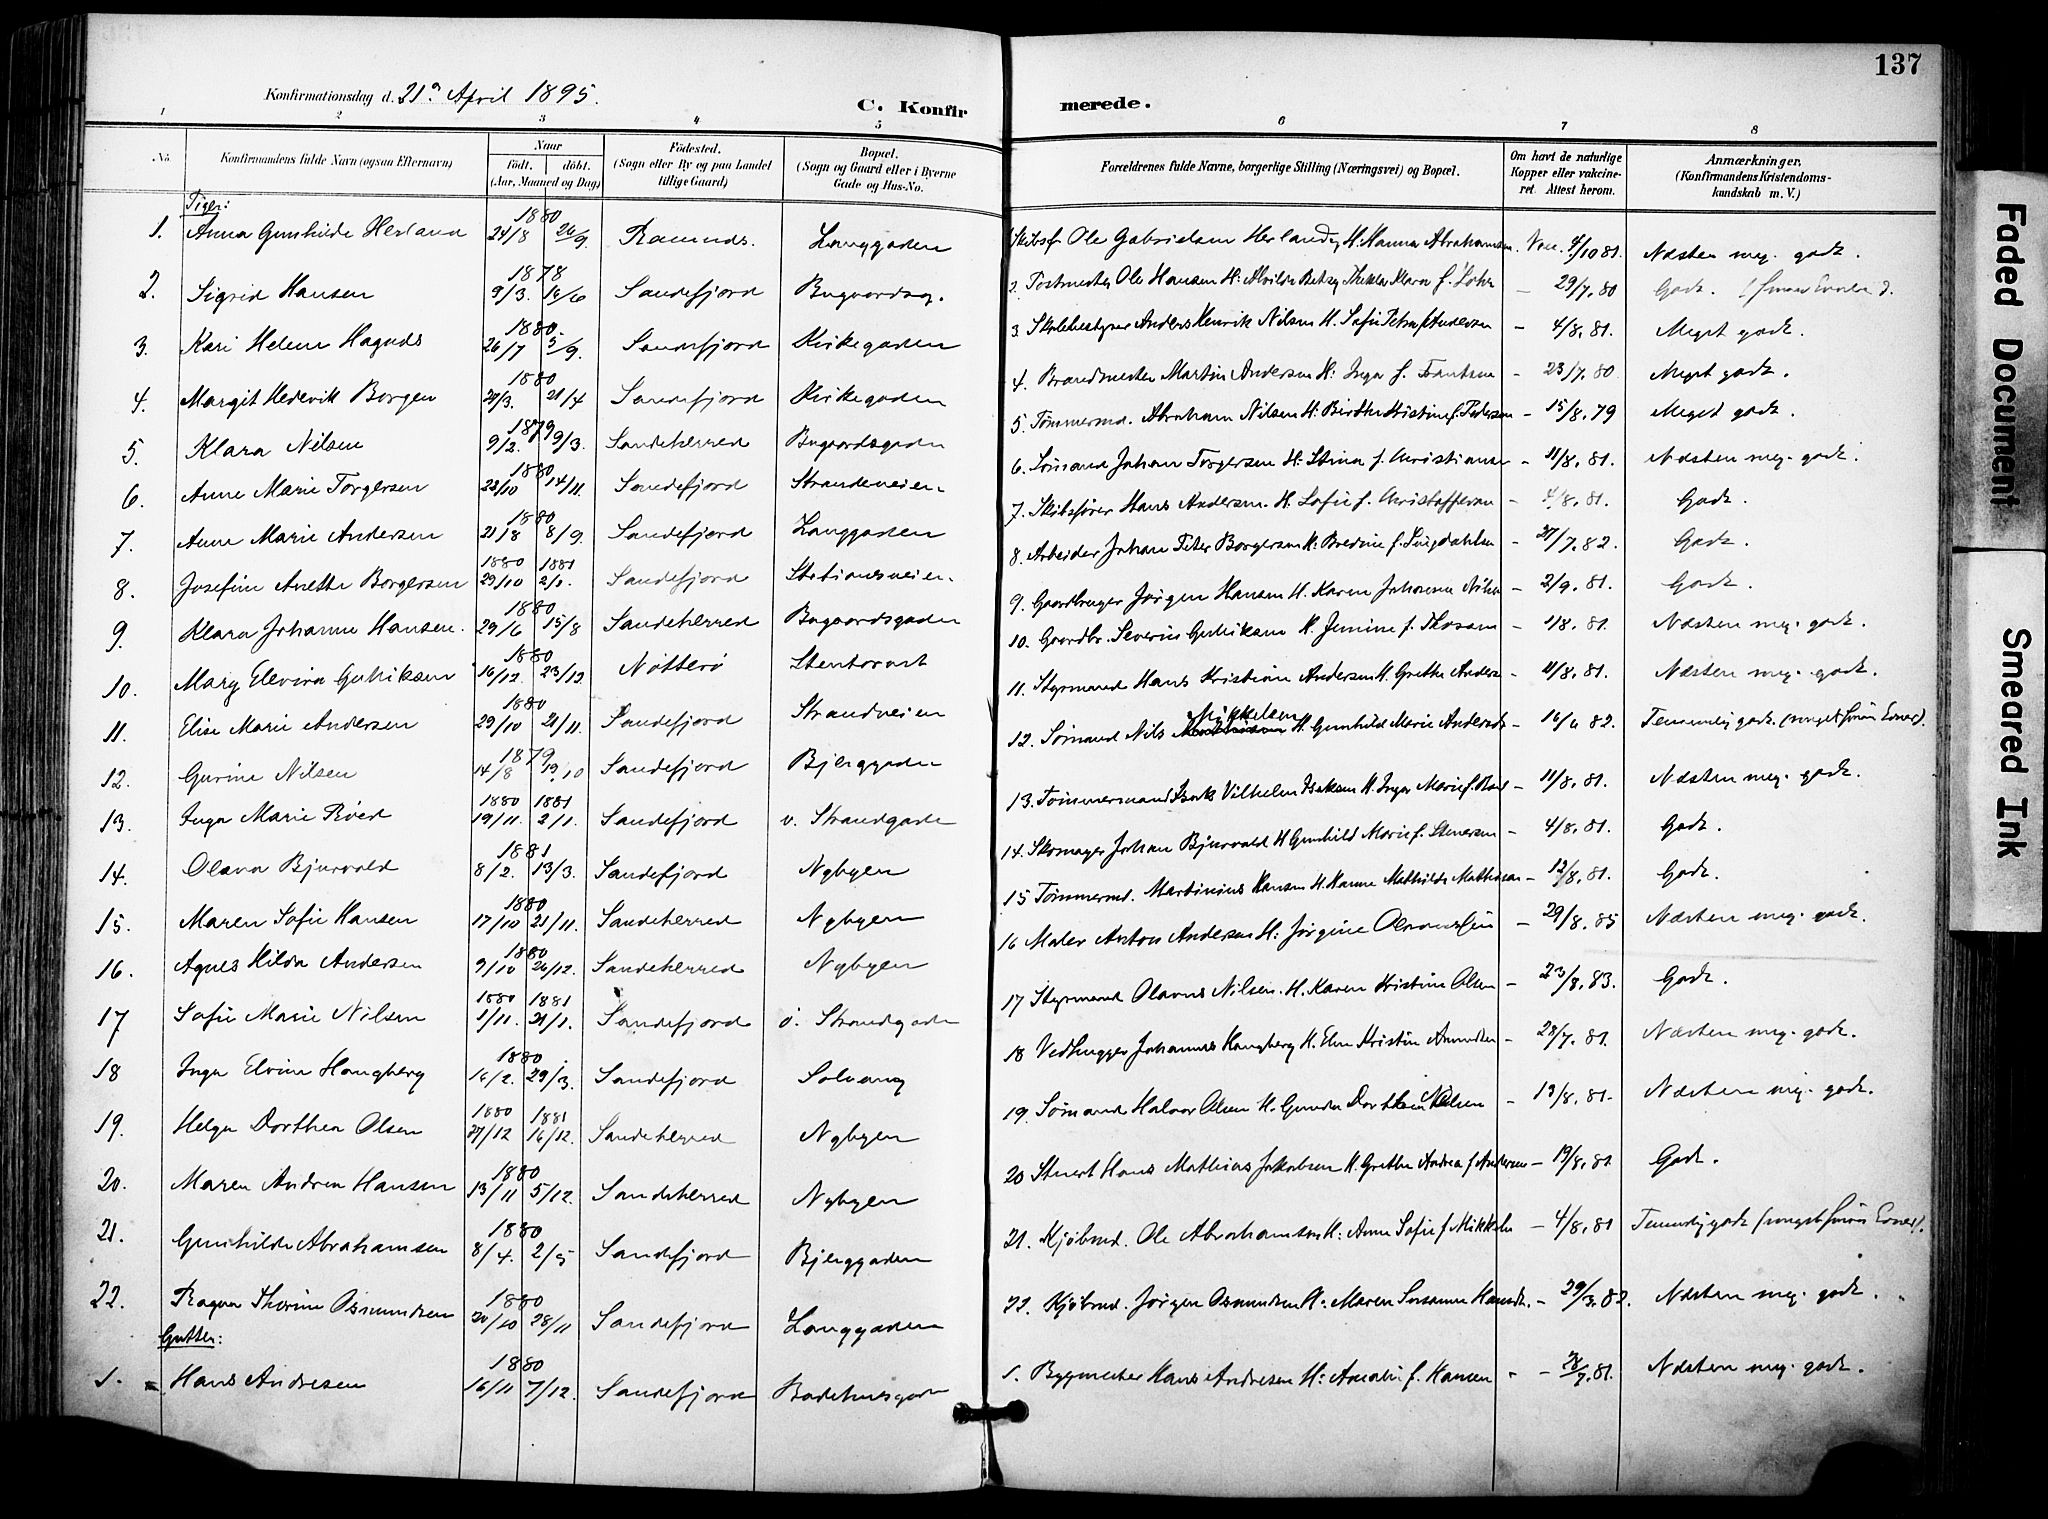 137
Konfirmationsdag d. 21de April 1895.
C. Konfirmerede.
1 2 3 4 5 6 7 8
No.
Konfirmandens fulde Navn (ogsaa Efternavn)
Naar
födt. döbt.
(Aar, Maaned og Dag)
Födested.
(Sogn eller By og paa Landet
tillige Gaard)
Bopæl.
(Sogn og Gaard eller i Byerne
Gade og Hus-No.
Forældrenes fulde Navne, borgerlige Stilling (Næringsvei) og Bopæl.
Om havt de naturlige
Kopper eller vakcine-
ret. Attest herom.
Anmærkninger.
(Konfirmandens Kristendoms-
kundskab m. V.)
Piger:
1. Anna Gunhilde Herland 1880 24/8 26/9. Ramnæs. Langgaden Ole Gabrielsen Herland H: Hanna Abrahamsen. Vacc. 4/10 81. Næsten meg. godt.
2. Sigrid Hansen 1878 9/3. 14/6 Sandefjord Bugaardsg. 2. Postmester Ole Hansen H: Alvilde Betzy Thekla Klara f. – 29/7. 80 Godt.
3. Kari Helene Hagnæs 1880 26/7 5/9. Sandefjord Kirkegaden 3. Skolebestyrer Anders Henrik Nilsen H. Sofie Petra Andersen – 4/8. 81. Meget godt.
4. Margit Hedevik Borgen 1880 29/3. 21/4 Sandefjord Kirkegaden 4. Brandmester Martin Andersen H: Inga f. Frantsen – 23/7. 80 Meget godt.
5. Klara Nilsen 1879 9/2. 9/3. Sandeherred Bugaardsgaden 5. Tømmermd. Abraham Nilsen H. Birthe Kristine f. Pedersen – 15/8. 79 Meget godt.
6. Anne Marie Torgersen 1880 23/10 14/11. Sandefjord Strandveien. 6. Sømand Johan Torgersen H: Stina f. Christiansen – 11/8. 81. Næsten meg. godt.
7. Anne Marie Andersen 1880 21/8 8/9. Sandefjord Langgaden 7. Skibsfører Hans Andersen. H. Sofie f. Christoffersen – 4/8. 81. Godt.
8. Josefine Anette Borgersen 1880 29/10 1881 2/1. Sandefjord Stationsveien. 8. Arbeider Johan Peter Borgersen H: Bredine f. – 27/7. 82. Godt.
9. Klara Johanne Hansen. 1880 29/6 15/8 Sandeherred Bugaardsgaden 9. Gaardbruger Jørgen Hansen H. Karen Johanne Nilsen – 2/9. 81. Godt.
10. Mary Elevina Gulliksen 1880 16/12. 23/12. Nøtterø Stentorvet 10. Gaardbr. Severin Gulliksen H. Jensine f. – 1/8. 81. Næsten meg. godt.
11. Elise Marie Andersen 1880 29/10 21/11. Sandefjord Strandveien 11. Styrmand Hans Kristian Andersen H. Grethe Anders. – 11/8. 81. Næsten meg. godt.
12. Gurine Nilsen 1879 14/8 19/10 Sandefjord Bjerggaden 12. Sømand Nils Mikkelsen H. Gunhild Marie Andersdr – 16/6 82. Temmelig godt. (meget smaa Evner).
13. Inga Marie Røed 1880 19/11. 1881 2/1. Sandefjord v. Strandgade 13. Tømmermand Isak Vilhelm Isaksen H. Inger Marie f. – 11/8. 81. Næsten meg. godt.
14. Olava Bjurvald 1881 8/2. 13/3. Sandefjord Nybyen 14. Skomager Johan Bjurvald H Gunhild Marie f. Stenersen – 4/8. 81. Godt.
15. Maren Sofie Hansen 1880 17/10 21/11. Sandeherred Nybyen 15 Tømmermd. Martinius Hansen H. Hanne Mathilde Mathisen – 12/8. 81. Godt.
16. Agnes Hilda Andersen 1880 9/10 26/12. Sandeherred Nybyen 16 Maler Anton Andersen H: Jørgine – 29/8. 85 Næsten meg. godt.
17 Sofie Marie Nilsen 1880 1/11. 1881 21/1. Sandefjord ø. Strandgade 17 Styrmand Olavus Nilsen. H. Karen Kristine Olsen – 23/8. 83. Godt.
18 Inga Elvine Haugberg 1880 16/2. 29/3. Sandefjord Solvang 18 Vedhugger Johannes Haugberg H. Elen Kristine Amundsen – 28/7. 81. Næsten meg. godt.
19. Helga Dorthea Olsen 1880 27/12 1881 16/12. Sandeherred Nybyen 19. Sømand Halvor Olsen H. Gunda Dorthea Nilsen – 13/8. 81. Næsten meg. godt.
20. Maren Andrea Hansen 1880 13/11 5/12. Sandeherred Nybyen 20 Stuert Hans Mathias Jakobsen H. Grethe Andrea f Andersen – 19/8. 81 Godt.
21. Gunhilde Abrahamsen 1880 8/4. 2/5 Sandefjord Bjerggaden 21. Kjøbmd. Ole Abrahamsen H: Anne Sofie f Mikkelsen – 4/8. 81 Temmelig godt (meget smaa Evner).
22. Ragna Thorine Osmundsen 1880 20/10 28/11 Sandefjord Langgaden 22. Kjøbmd. Jørgen Osmundsen H: Maren Susanne Hansdr. – 29/3. 82. Næsten meg. godt.
Gutter:
1. Hans Andresen 1880 16/11 7/12. Sandefjord Badehusgade 1. Bygmester Hans Andresen H: Amalie f. Hansen – 28/7. 81. Næsten meg. godt.
Faded Document
Smeared Ink